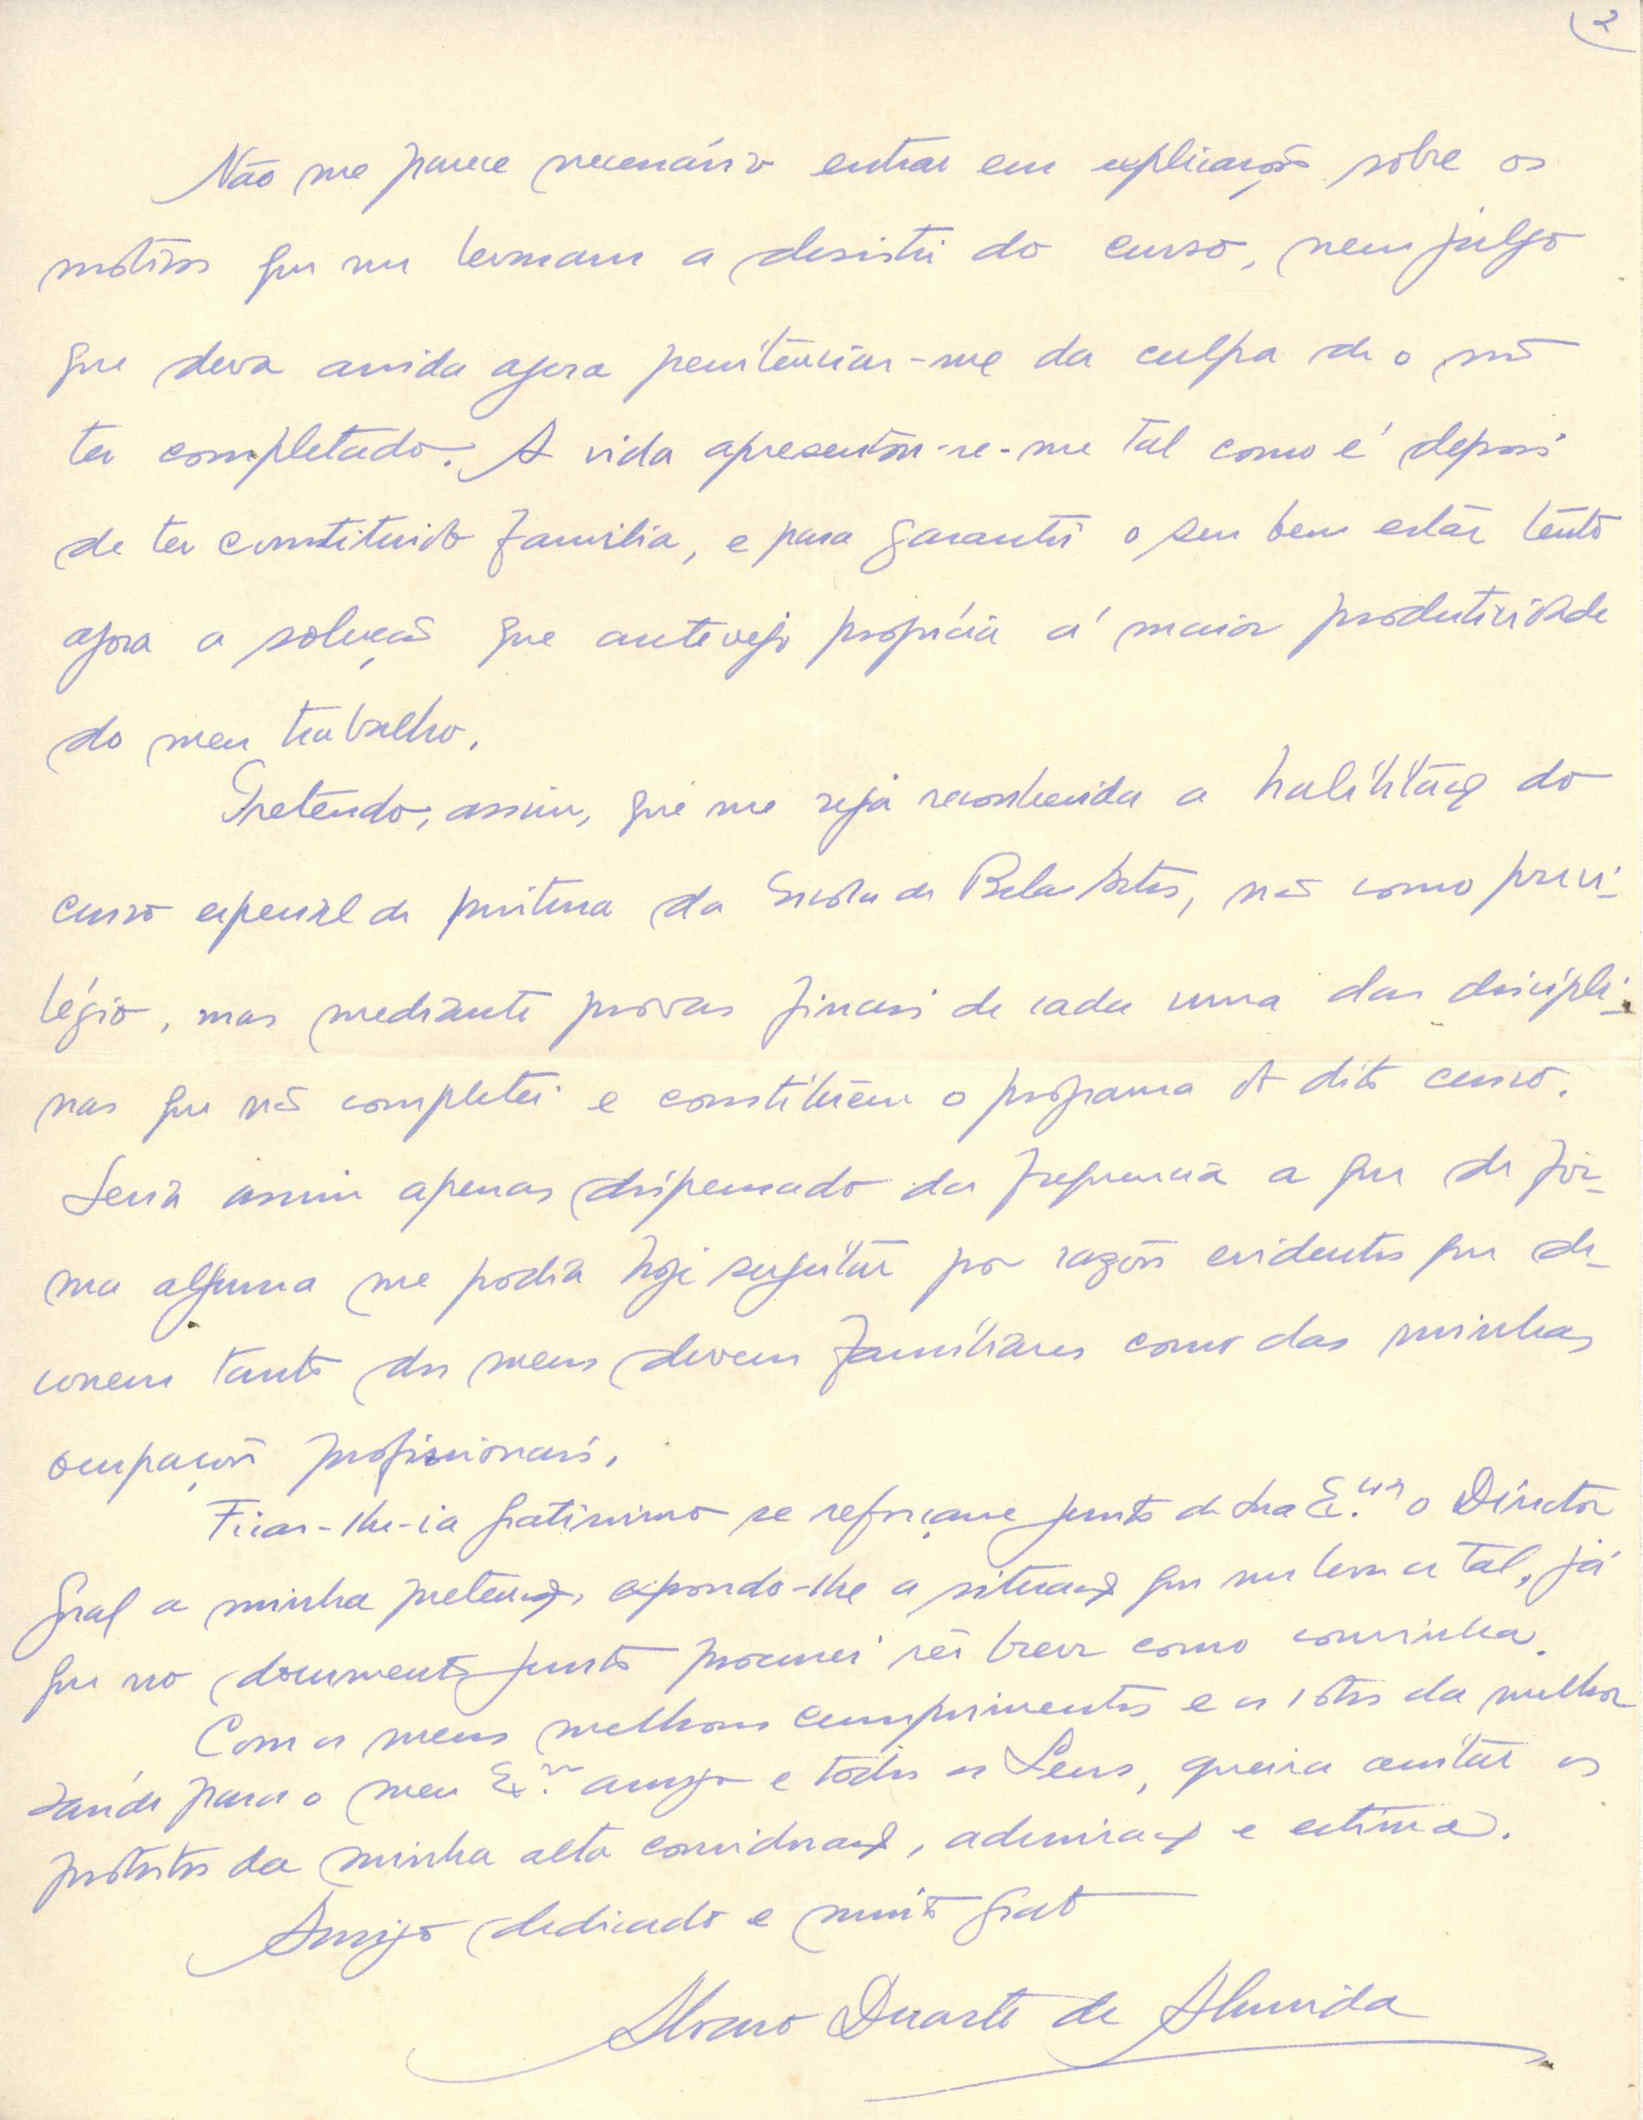 2
Não me parece necessário entrar em explicações sôbre os
motivos que me levaram a desistir do curso, nem julgo
que deva ainda agora penitênciar-me da culpa de o não
ter completado. A vida apresentou-se-me tal como é depois
de ter constituido familia, e para garantir o seu bem estár tento
agora a solução que antevejo propícia á maior produtividade
do meu trabalho.
Pretendo, assim, que me seja reconhecida a habilitação do
curso especial de pintura da Escola de Belas Artes, não como previ-
légio, mas mediante provas finais de cada uma das discipli-
nas que não completei e constituem o programa do dito curso.
Seria assim apenas dispensado da frequencia a que de fór-
ma alguma me podia hoje sugeitar por razões evidentes que de-
correm tanto dos meus deveres familiares como das minhas
ocupações profissionais.
Ficar-lhe-ia gratissimo se reforçasse junto de Sua Ex.cia o Diretor
Geral a minha pretenção, expondo-lhe a situação que me leva a tal, já
que no documento junto procurei sêr breve como convinha.
Com os meus melhores cumprimentos e os votos da melhor
saúde para o meu Ex.mo amigo e todos os Seus, queira aceitar os
protestos da minha alta consideração, admiração e estima.
Amigo dedicado e muito grato
Alvaro Duarte de Almeida